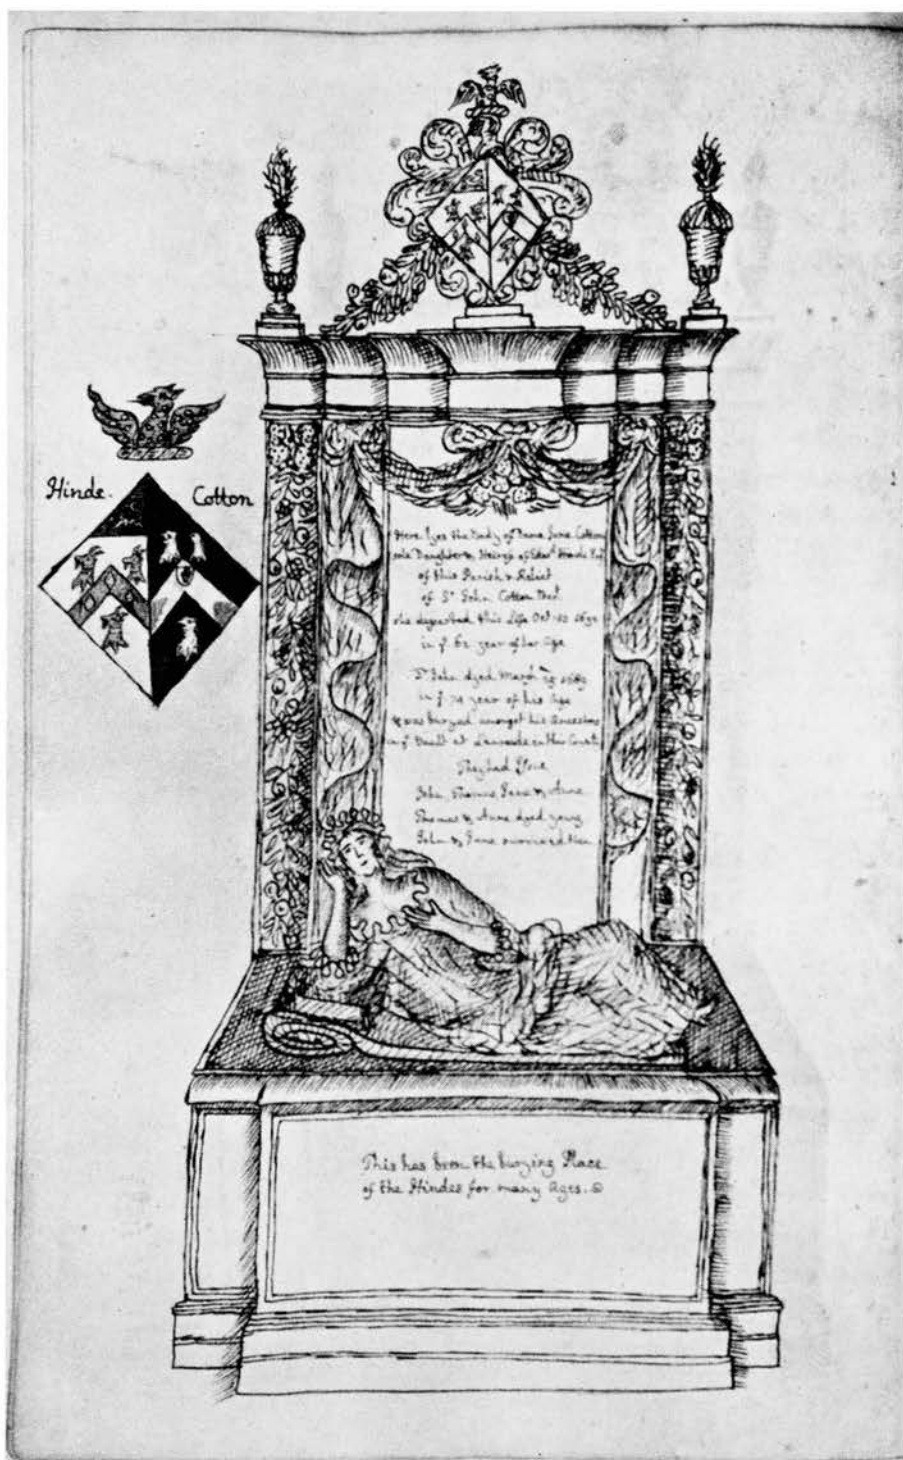 Hinde.
Cotton
Here lyes the Body of Dame Jane Cotton
sole Daughter & Heiress of Edwd Hinde Esqr
of this Parish & Relict
of Sr John Cotton Bart
she departed this Life Octr
in ye year of her Age
Sr John dyed March 1689
in ye 74 year of his Age
& was buryed amongst his Ancestors
in ye Vault at Lanwade in this County
They had Issue
John, Thomas, Jane & Anne
Thomas & Anne dyed young
John & Jane survived them
This has been the burying Place
of the Hindes for many Ages.